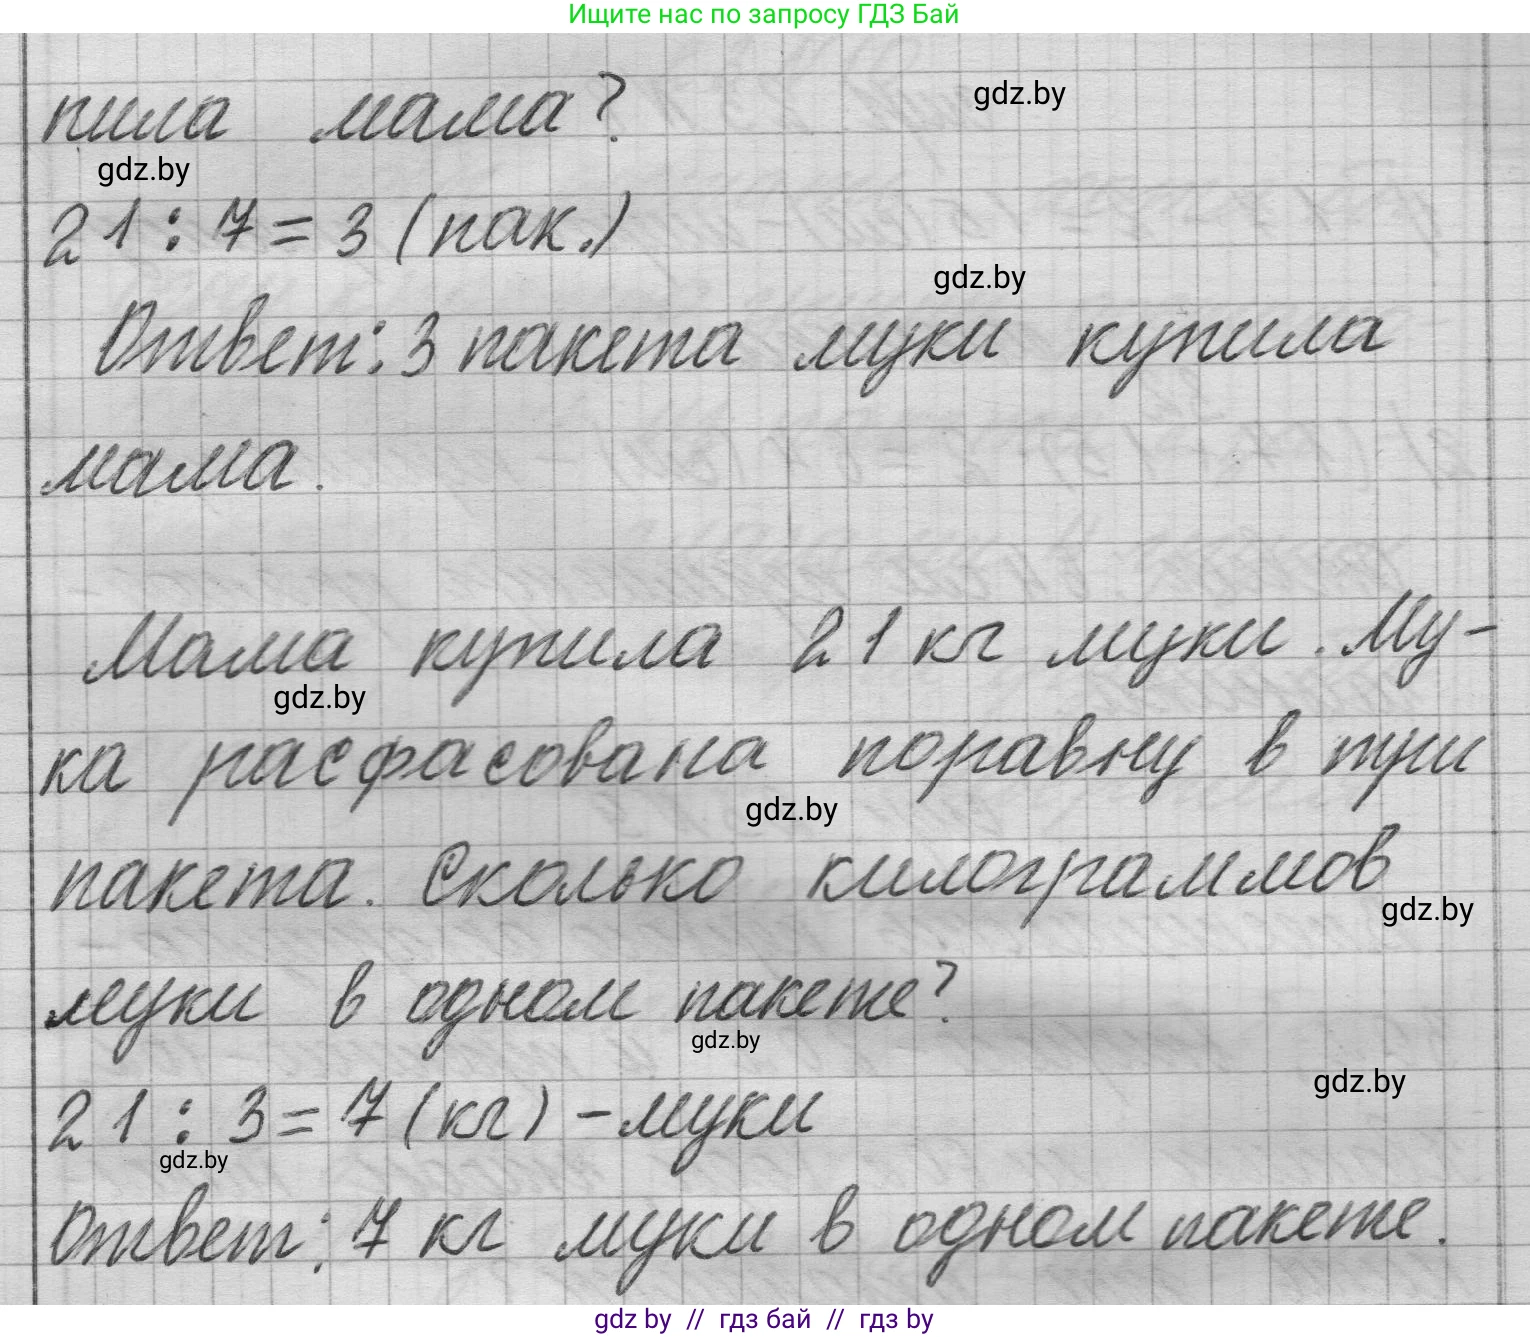 Ищите нас по запросу ГДЗ Бай
пила мама?
gdz.by
gdz.by
21 : 7 = 3 (пак.)
gdz.by
Ответ: 3 пакета муки купила
мама.
Мама купила 21 кг муки. Му-
gdz.by
ка расфасована поравну в три
gdz.by
пакета. Сколько килограммов
gdz.by
муки в одном пакете?
gdz.by
gdz.by
21 : 3 = 7 (кг) - муки
gdz.by
Ответ: 7 кг муки в одном пакете.
gdz by // гдз бай // гдз by